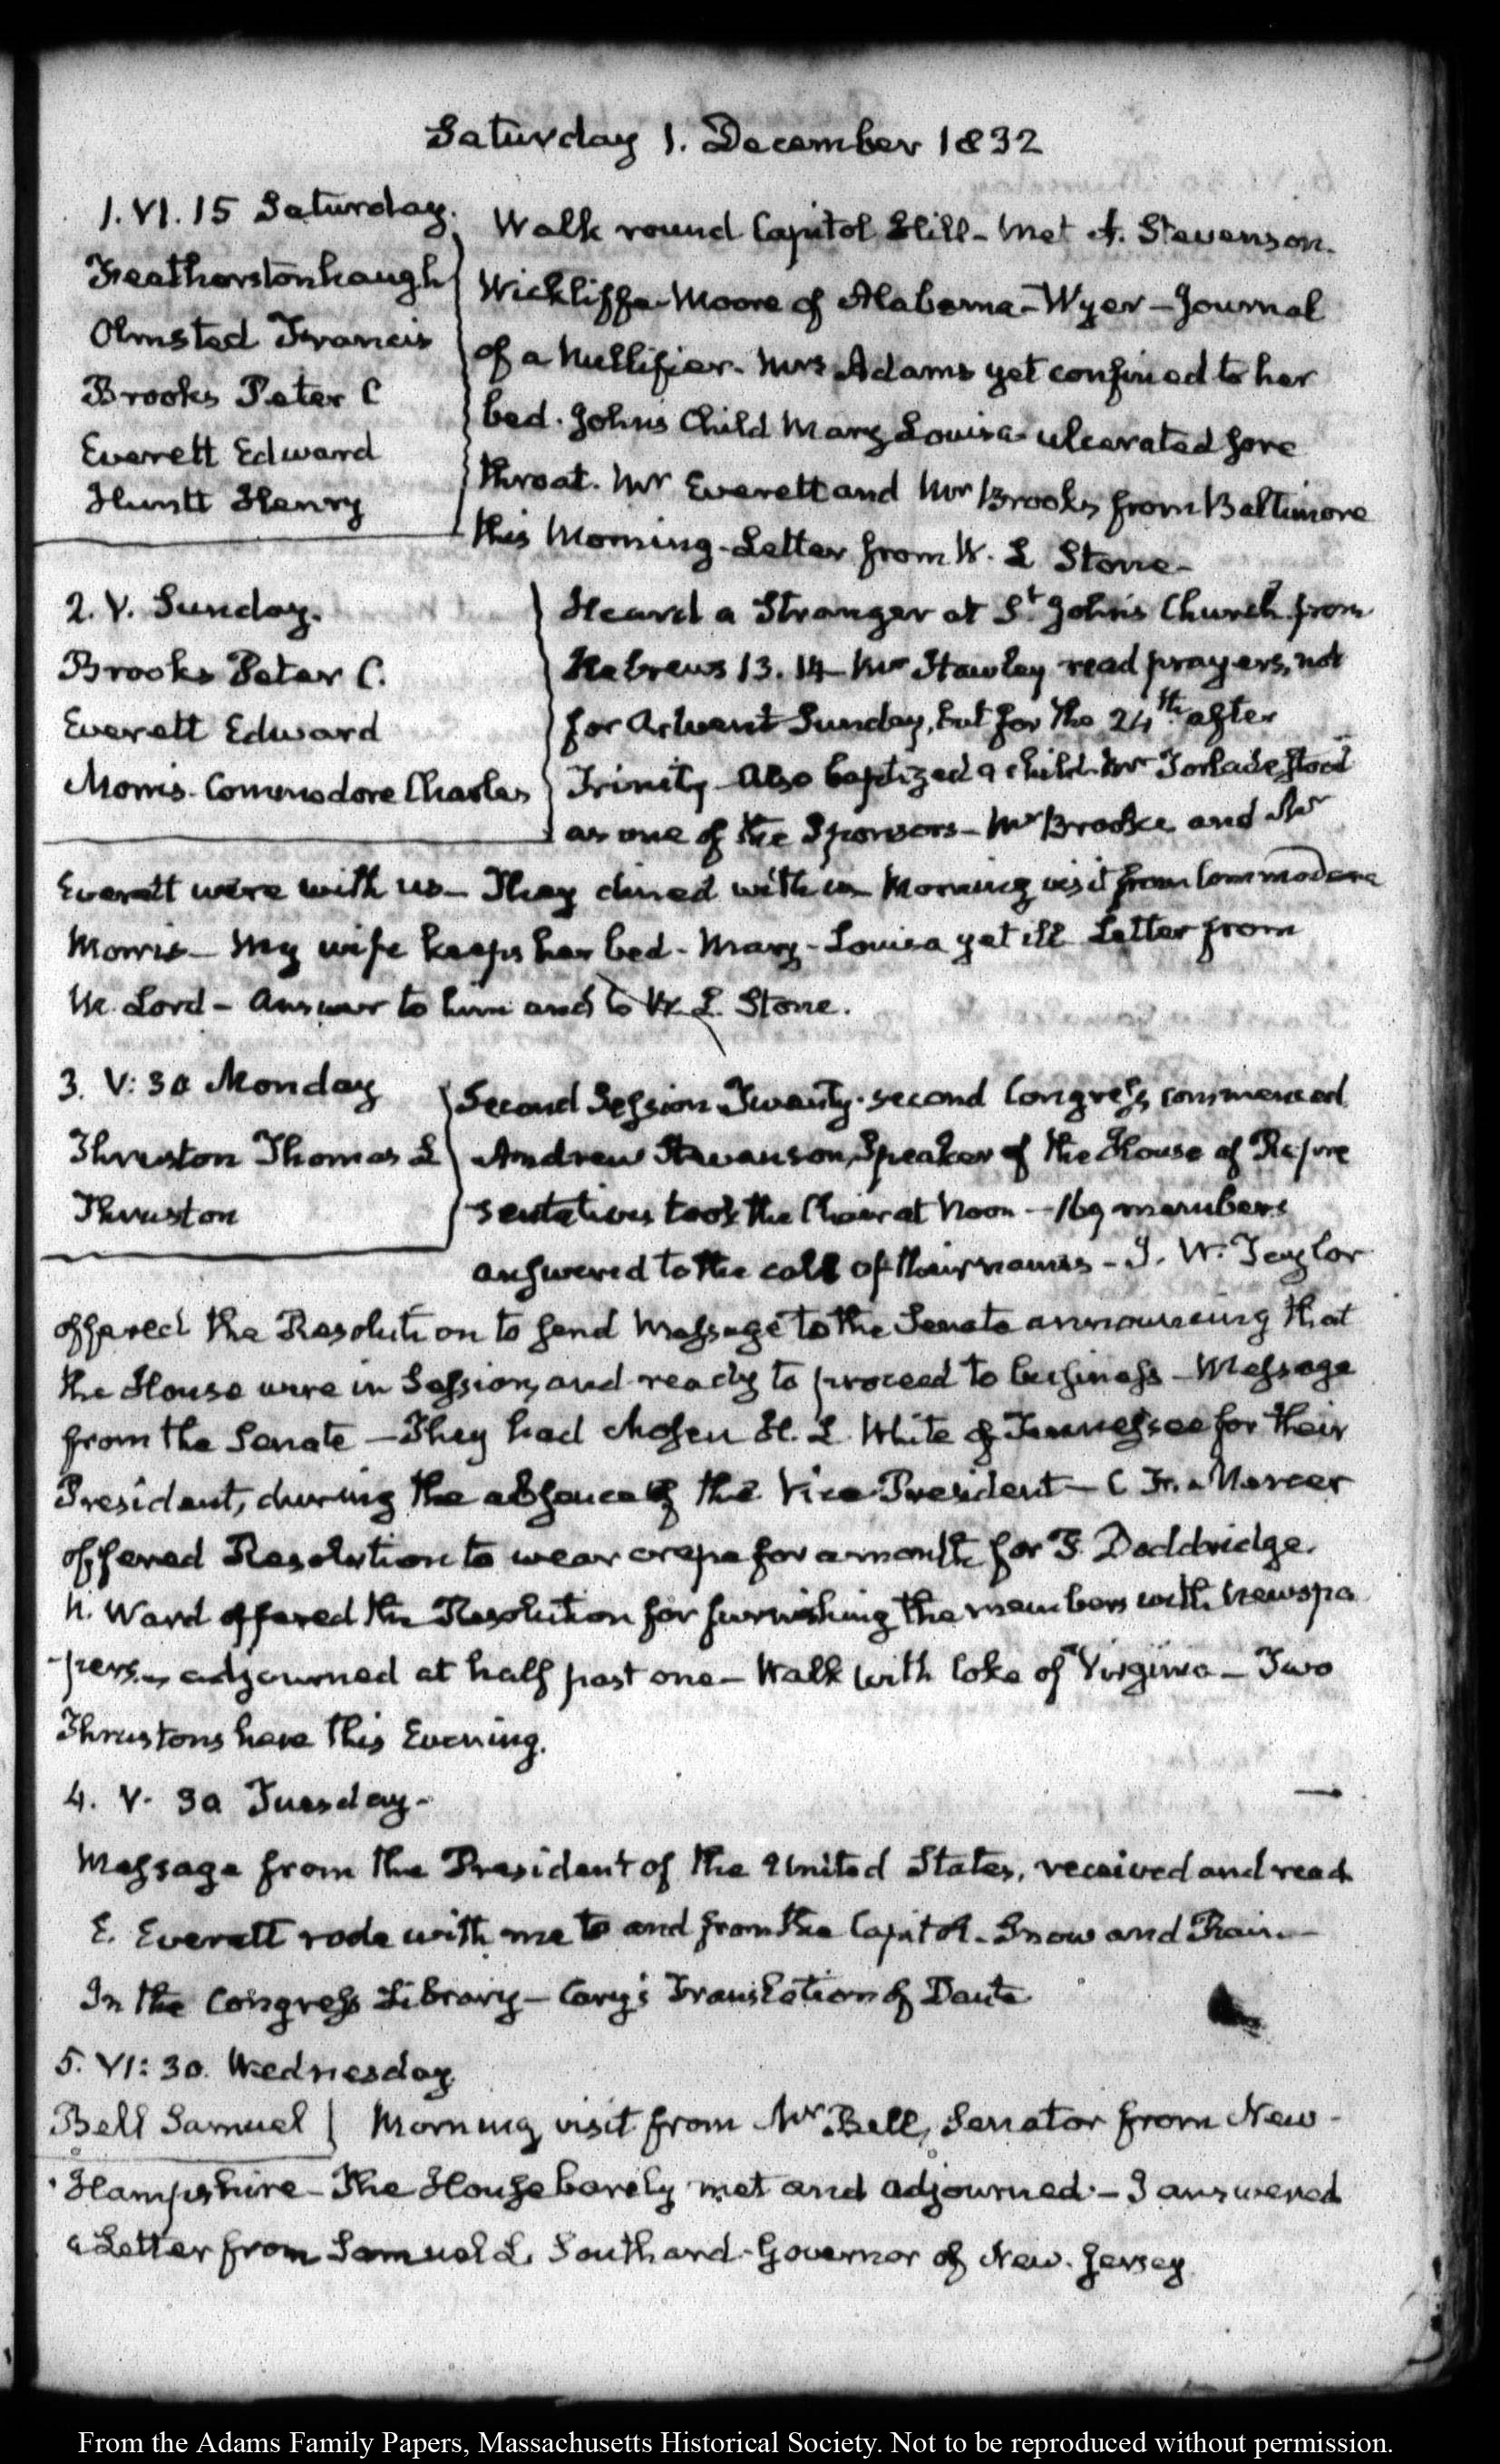 Saturday 1. December 1832
1. VI. 15 Saturday.
Featherstonhaugh
Olmsted Francis
Brooks Peter C
Everett Edward
Huntt Henry
Walk round Capitol Hill - Met A. Stevenson.
Wickliffe - Moore of Alabama - Wyer - Journal
of a Nullifier. Mrs Adams yet confined to her
bed. John's Child Mary Louisa - ulcerated sore
throat. Mr Everett and Mr Brooks from Baltimore
this Morning - Letter from W. L Stone -
2. V. Sunday.
Brooks Peter C.
Everett Edward
Morris - Commodore Charles
Heard a Stranger at St John's Church from
Hebrews 13. 14 - Mr Hawley read prayers, not
for Advent Sunday, but for the 24th after
Trinity - Also baptized a child - Mr Torlade stood
as one of the Sponsors - Mr Brooks and Mr
Everett were with us - They dined with us - Morning visit from Commodore
Morris - My wife keeps her bed - Mary-Louisa yet ill Letter from
M. Lord - Answer to him and to W. L. Stone.
3. V: 30 Monday
Thruston Thomas L
Thruston
Second Session Twenty-second Congress commenced
Andrew Stevenson, Speaker of the House of Repre
sentatives took the Chair at Noon - 169 members
answered to the call of their names - J. W. Taylor
offered the Resolution to send Message to the Senate announcing that
the House were in Session, and ready to proceed to business - Message
from the Senate - They had chosen H. L. White of Tennessee for their
President, during the absence of the Vice-President - C Fn. Mercer
offered Resolution to wear crape for a month for P. Doddridge.
A. Ward offered the Resolution for furnishing the members with newspa
-pers - adjourned at half past one - Walk with Coke of Virginia - Two
Thrustons here this Evening.
4. V. 30 Tuesday -
Message from the President of the United States, received and read
E. Everett rode with me to and from the Capitol - Snow and Rain -
In the Congress Library - Cary's Translation of Dante
5. VI: 30. Wednesday
Bell Samuel
Morning visit from Mr Bell, Senator from New-
Hampshire - The House barely met and adjourned - I answered
a Letter from Samuel L. Southard - Governor of New-Jersey
From the Adams Family Papers, Massachusetts Historical Society. Not to be reproduced without permission.